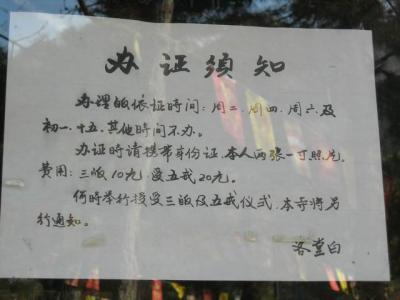 办证须知
办理皈依证时间：周二.周四.周六及
初一.十五.其他时间不办。
办证时请携带身份证.本人两张一寸照片.
费用：三皈10元.受五戒20元。
何时举行授受三皈及五戒仪式.本寺将另
行通知。
客堂白